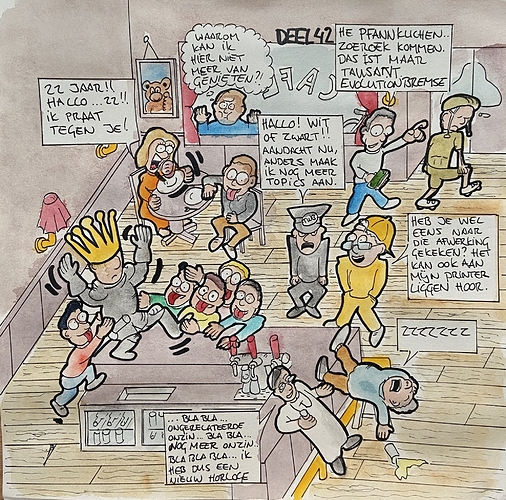 WAAROM
KAN IK
HIER NIET
MEER VAN
GENIETEN?!
DEEL 42
HE PFANNKUCHEN..
ZOEROEK KOMMEN.
DAS IST MAAR
EVOLUTIONBREMSE
22 JAAR!!
HALLO...22!!
IK PRAAT
TEGEN JE!
CAF
HALLO! WIT
OF ZWART!!
AANDACHT NU,
ANDERS MAAK
IK NOG MEER
TOPICS AAN.
HEB JE WEL
EENS NAAR
DIE AFWERKING
GEKEKEN? HET
KAN OOK AAN
MIJN PRINTER
LIGGEN HOOR.
ZZZZZZZ
... BLA BLA...
ONGERELATEERDE
ONZIN... BLA BLA...
NOG MEER ONZIN..
BLA BLA BLA... IK
HEB DUS EEN
NIEUW HORLOGE